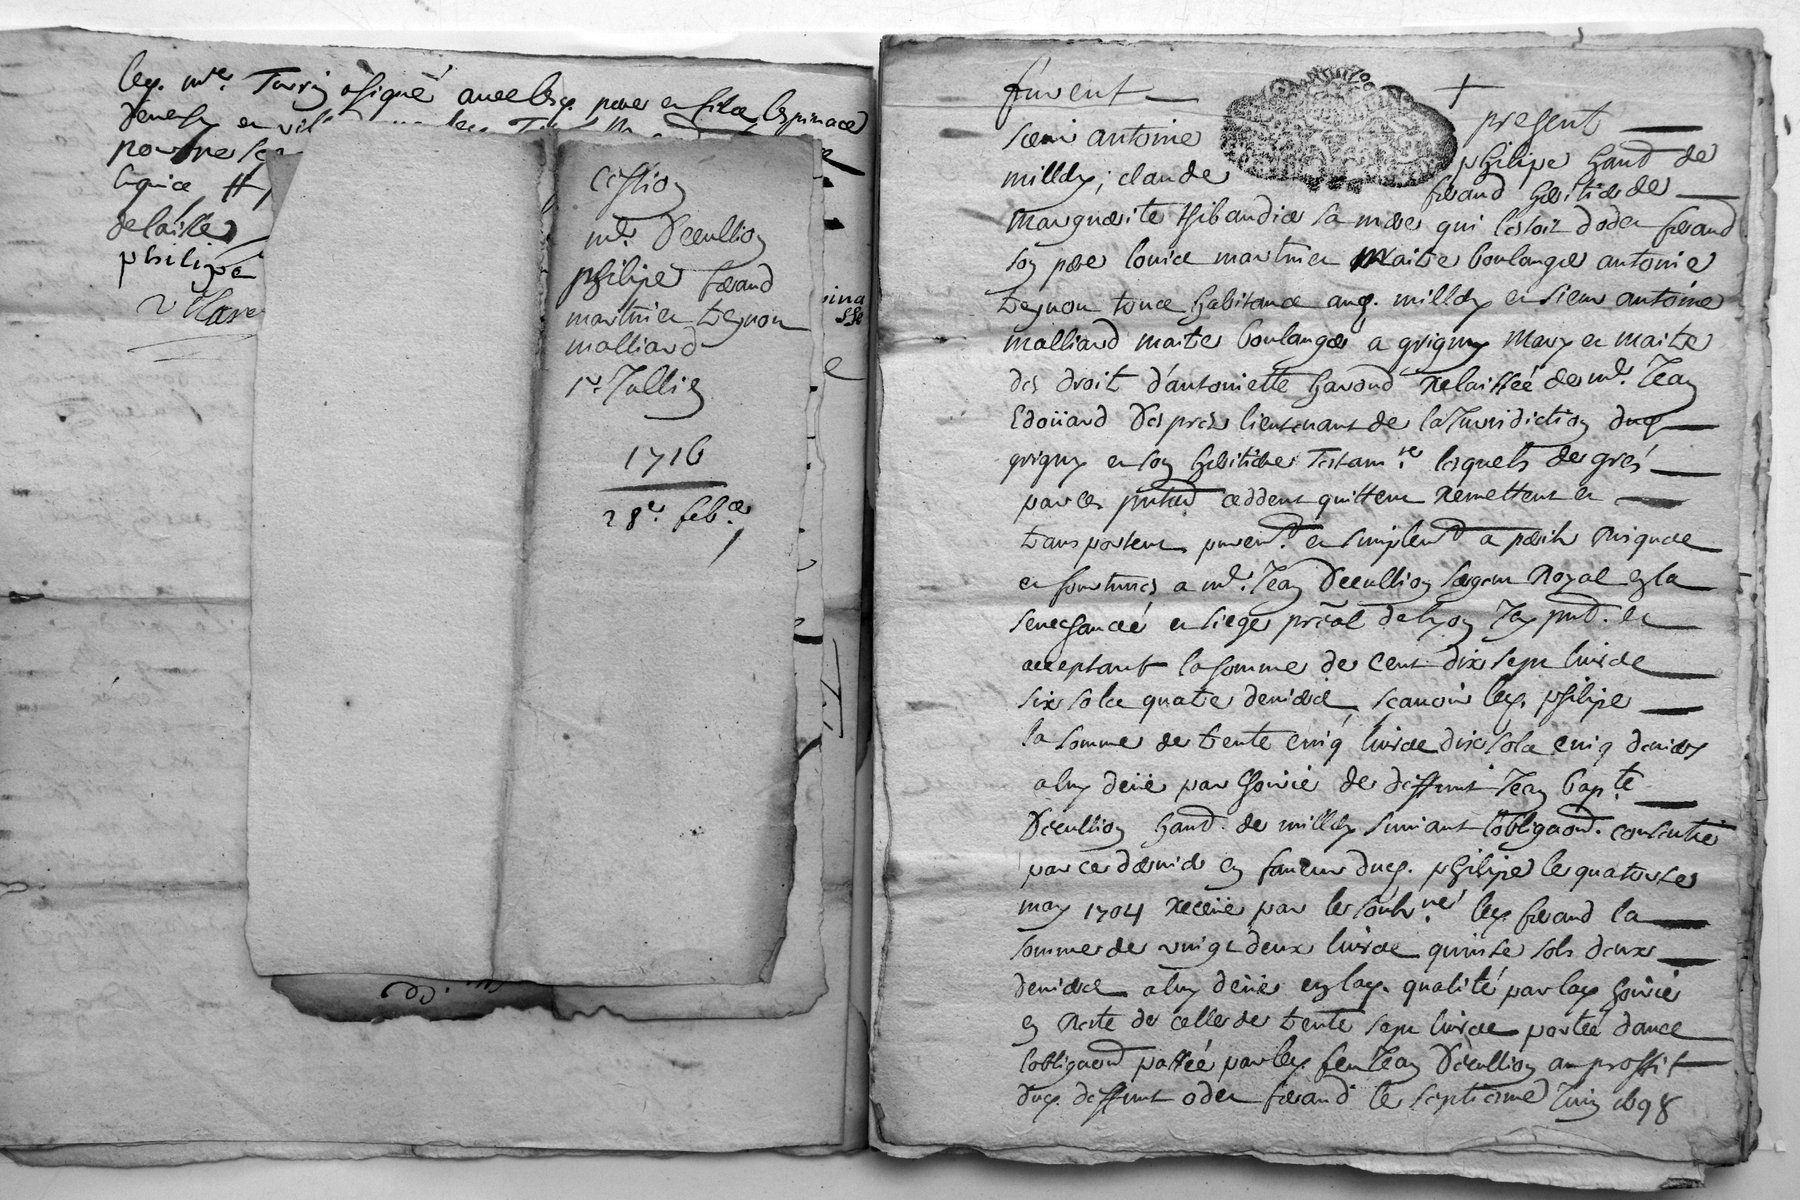 leq. mre. Turin a signé avec lesq. pour en
philipe
Cession
mre. Decullion
philipe ferand
martinier teynon
malliard
Sr. Jullien
1716
28e. feb.er
furent
present
sieur antoine
philipe hand. de
millery; claude
ferand heritier de
marguerite thibaudier sa mere qui lestoit doder ferand
son pere louis martinier Maitre boulanger antoine
teynon tous habitans aud. millery et sieur antoine
malliard maitre boulanger a grigny mary et maitre
des droit d'antoinette havond relaissée de mre. Jean
Edoüard Desprez lieutenant de la Jurisdiction dud.
grigny et son heritiere testam.re lesquels de gré
par ces pntes cedent quittent remettent et
transportent purem.t et simplem.t a perils risques
et fortunes a mre. Jean Decullion sergent Royal en la
senechaucée et siege pré͠al de lyon Icy pnt. et
acceptant la somme de cent dix sept livres
six sols quatre deniers, scavoir led. philipe
la somme de trente cinq livres dix sols cinq deniers
a luy deüe par hoirie de deffunt Jean bapte.
Decullion hand. de millery suivant l'obligaon. consentie
par ce dernier en faveur dud. philipe le quatorze
may 1704 receüe par le soub.né led. ferand la
somme de vingt deux livres quinse sols deux
deniers a luy deüe en lad. qualité par lad. hoirie
en Reste de celle de trente sept livres portée dans
lobligaon passée par led. feu Jean Decullion au proffit
dud. deffunt oder ferand le septieme Juin 1698